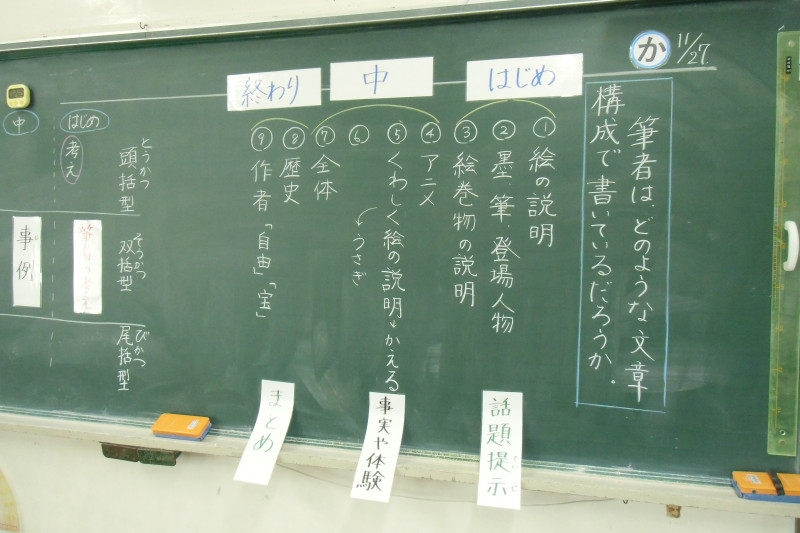 11/27
か
筆者は、どのような文章
構成で書いているだろうか。
はじめ
中
終わり
①絵の説明
②墨、筆、登場人物
③絵巻物の説明
④アニメ
⑤くわしく絵の説明→かえる
⑥ →うさぎ
⑦全体
⑧歴史
⑨作者「自由」「宝」
話題提示
ていじ
事実や体験
まとめ
とうかつ
頭括型
そうかつ
双括型
びかつ
尾括型
はじめ
考え
中
事例